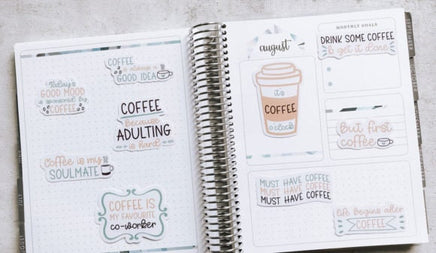 COFFEE
is always a
GOOD IDEA
Today's
GOOD MOOD
is sponsored by
COFFEE
COFFEE
because
ADULTING
is hard!
Coffee is my
SOULMATE
COFFEE IS
MY FAVOURITE
co-worker
MONTHLY GOALS
august
DRINK SOME COFFEE
& get it done
it's
COFFEE
o'clock
But first
coffee
MUST HAVE COFFEE
MUST HAVE COFFEE
MUST HAVE COFFEE
Life begins after
COFFEE